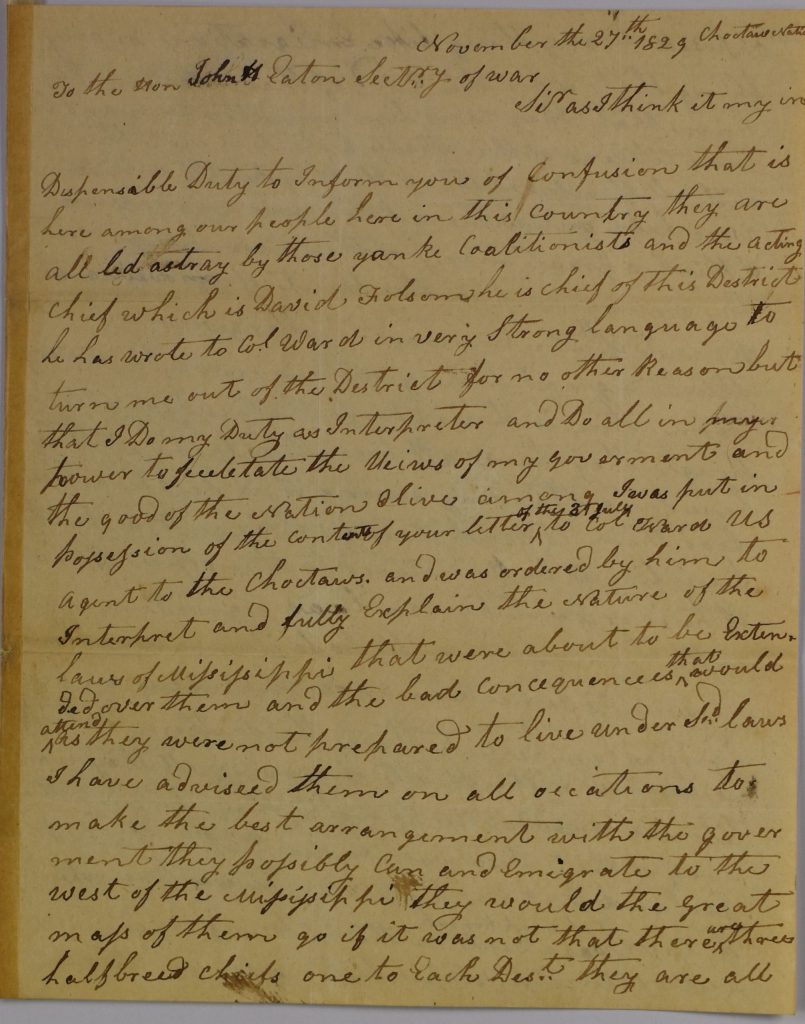 November the 27th 1829 Choctaw Natio
To the Hon John H Eaton Sectry of war
Sir as I think it my in
Dispensible Duty to Inform you of Confusion that is
here among our people here in this Country they are
all led astray by those yanke Coalitionists and the acting
Chief which is David Folsom he is chief of this District
he has wrote to Col Ward in very Strong language to
turn me out of the District for no other Reason but
that I Do my Duty as Interpreter and Do all in my
power to feceletate the Veiws of my goverment and
the good of the Nation I live among I was put in
possession of the Contents of your letter of the 31 July to Col Ward US
Agent to the Choctaws. and was ordered by him to
Interpret and fully Explain the Nature of the
laws of Missisippi that were about to be Exten-
ded over them and the bad Concequencees that would
attend as they were not prepared to live under Sd laws
I have adviseed them on all occations to
make the best arrangement with the gover
ment they possibly Can and Emigrate to the
west of the Missisippi they would the great
mass of them go if it was not that there are three
halfbreed chiefs one to Each Dest. they are all